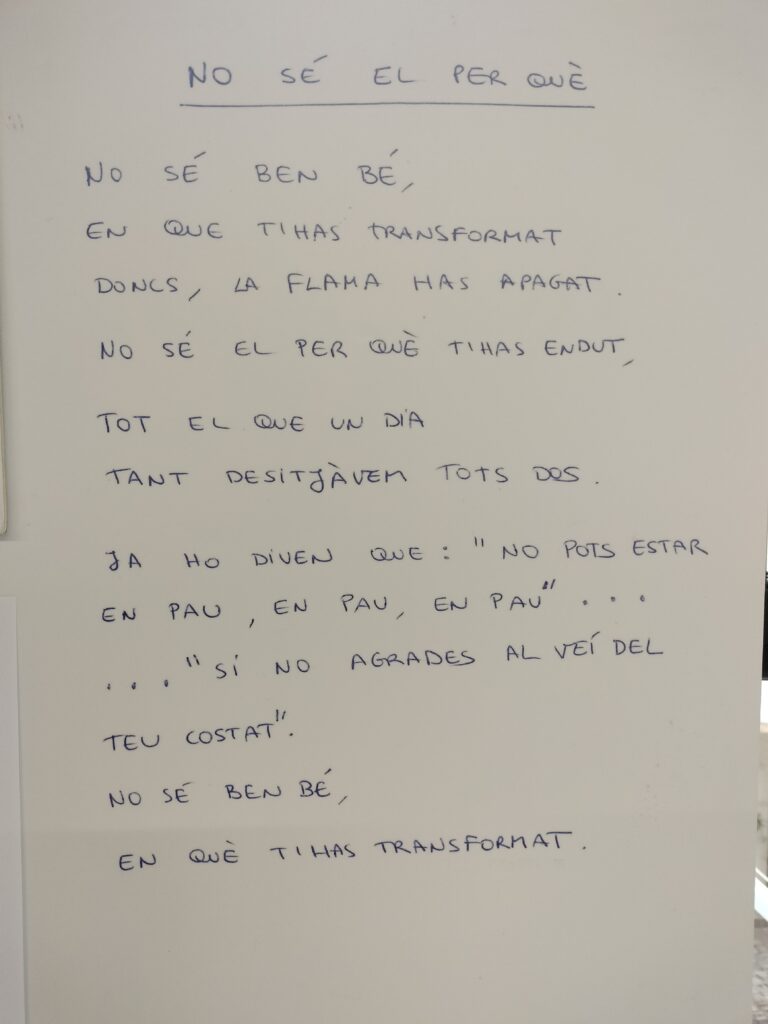 NO SÉ EL PER QUÈ
NO SÉ BEN BÉ,
EN QUE T'HAS TRANSFORMAT
DONCS, LA FLAMA HAS APAGAT.
NO SÉ EL PER QUÈ T'HAS ENDUT,
TOT EL QUE UN DIA
TANT DESITJÀVEM TOTS DOS.
JA HO DIVEN QUE: "NO POTS ESTAR
EN PAU, EN PAU, EN PAU"...
..."SI NO AGRADES AL VEÍ DEL
TEU COSTAT".
NO SÉ BEN BÉ,
EN QUÈ T'HAS TRANSFORMAT.